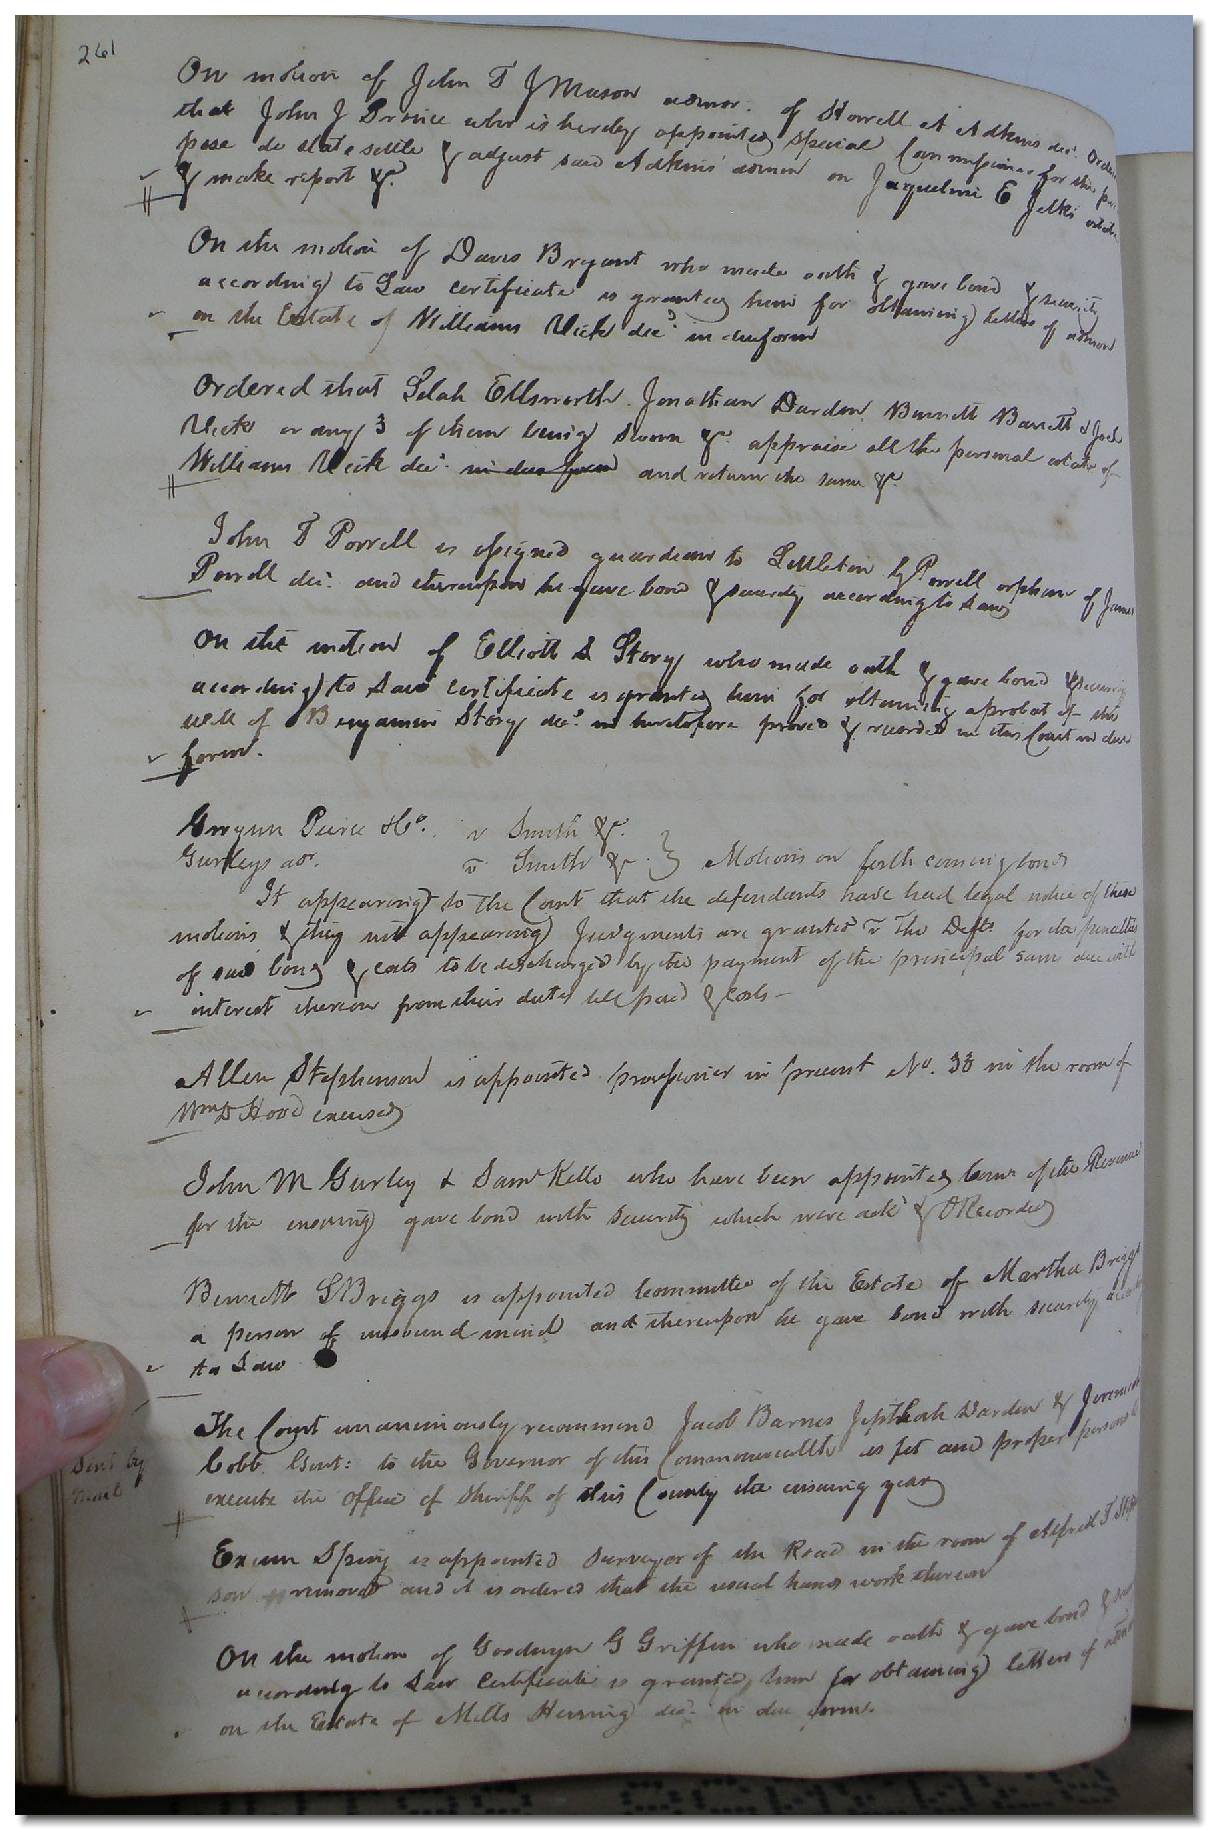 261
On motion of John T J Mason admor. of Sterrell A Adkins dec. Ordered
that John J Prince who is hereby appointed special Commissioner for the pur
pose do state settle & adjust said Adkins admon on Jaqueline E Jelks estate
& make report &c.
On the motion of Davis Bryant who made oath & gave bond & security
according to Law certificate is granted him for obtaining letters of admon
on the Estate of Williams Vick decd. in due form
Ordered that Selah Ellsworth. Jonathan Darden Burnett Barrett & Jack
Vick or any 3 of them being sworn &c. appraise all the personal estate of
Williams Vick dec. in due form and return the same &c.
John T Porrell is assigned guardian to Littleton G Porrell orphan of James
Porrell dec. and thereupon he gave bond & security according to Law
On the motion of Elliott L Story who made oath & gave bond & security
according to Law certificate is granted him for obtaining a probat of the
will of Benjamin Story decd. in heretofore proved & recorded in this Court in due
form.
Gwynn Peirce & Co. v Smith &c.
Gurleys aor. v Smith &c. } Motions on forth coming bonds
It appearing to the Court that the defendants have had legal notice of these
motions & they not appearing Judgments are granted v The Defts for the penalties
of said bonds & costs to be discharged by the payment of the principal sum due with
interest thereon from their dates till paid & Costs -
Allen Stephenson is appointed processioner in precinct No. 38 in the room of
Wm D Hood excused
John M Gurley & Saml Kello who have been appointed Comrs of the Revenue
for the ensuing gave bond with security which were ackd & ORecorded
Bennett G Briggs is appointed Committee of the Estate of Martha Briggs
a person of unsound mind and thereupon he gave bond with security according
to Law
The Court unanimously recommend Jacob Barnes Jepthah Darden & Jeremiah
Cobb Gent: to the Governor of this Commonwealth as fit and proper persons to
Sent by
execute the office of Sheriff of this County the ensuing year
Exum Spivy is appointed Surveyor of the Road in the room of Alfred T Steph
son removed and it is ordered that the usual hands work thereon
On the motion of Goodwyn G Griffin who made oath & gave bond &
according to Law Certificate is granted him for obtaining letters of admon
on the Estate of Mills Herring dec. in due form.